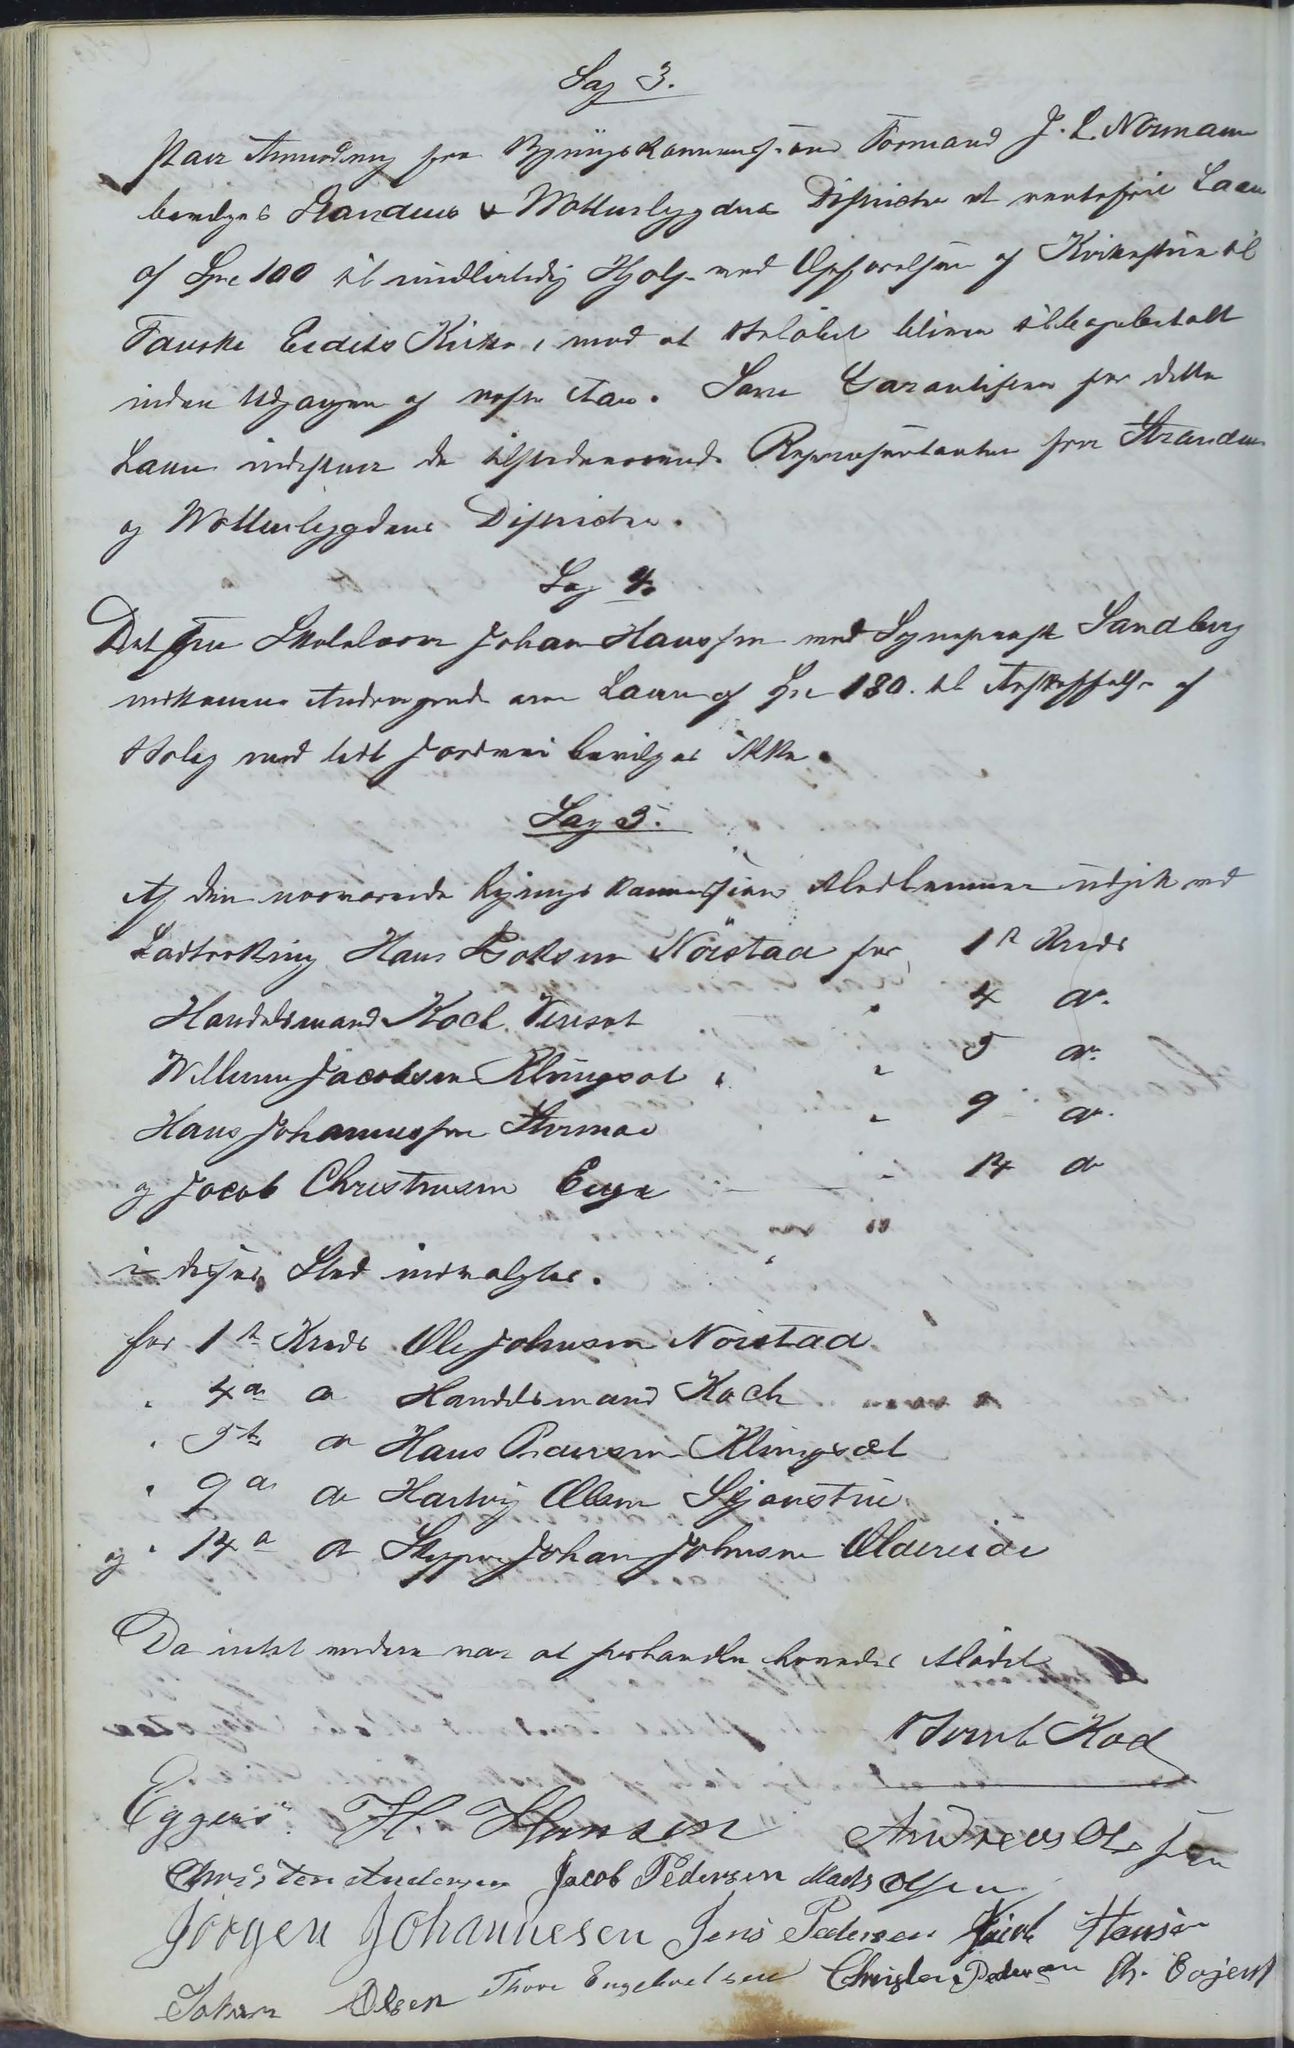 Sag 3.
Paa Anmodning fra Bygningskommissions Formand J. L. Normann
bevilges Strandens & Mosterbygdens Districter et rentefrit Laan
af Spd 100 til midlertidig Hjelp ved Opførelsen af til
Fauske Eidets Kirke, mod at Beløbet bliver tilbagebetalt
inden Udgangen af næste Aar. Som Garantister for dette
Laan indestaar de tilstedeværende Repræsentanter for Stranden
og Districter.
Sag 4.
Det fra Skolelærer Johan Hanssen med Sogneprest Sandberg
indkomne Andragende om Laan af Spd 180 til Anskaffelse af
Bolig med lidt Jordvei bevilges ikke.
Sag 5.
Af den nærværende Lignings Kommission Medlemmer udgik ved
Lodtrækning Hans Nøistad for 1ste Kreds
Handelsmand Koch Venset " 4 do
Willum Jacobsen Klungset " " 5 do
Hans Johannessen " 9 do
og Jacob Christensen " 14 do
i disses Sted indvalgtes.
for 1ste Kreds Ole Johnsen Nøistad
" 4de do Handelsmand Koch
" 5te do Hans Klungset
" 9de do Hartvig Olsen
og " 14de do Johan Johnsen Oldereide
Da intet videre var at forhandle hævedes Mødet
Koch
Eggers H. Hansen Andreas Olssen
Christen Andersen Jacob Pedersen Mads Olsen
Jørgen Johannesen Jens Pedersen Jacob Hansen
Johan Olsen Thore Engebretsen Christen Pedersen